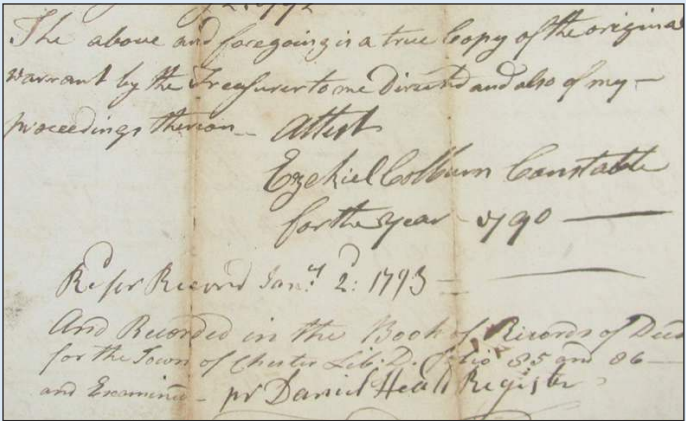 The above and foregoing is a true Copy of the original
warrant by the Treasurer to me Directed and also of my —
proceedings thereon — Attest
Ezekiel Colburn Constable
for the year 1790 —
Recd for Record Jany 2d: 1793 —
And Recorded in the Book of Records of Deeds
for the Town of Chester Lib. D. folio 85 and 86 —
and Examined — pr Daniel Heald Register